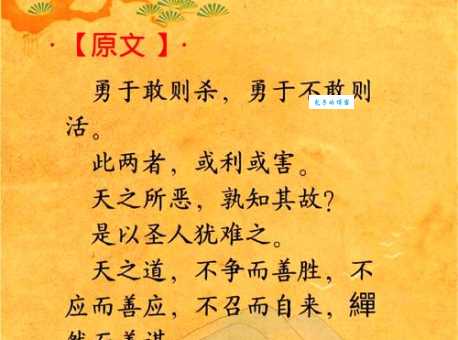 ·【原文】·
勇于敢则杀，勇于不敢则
活。
此两者，或利或害。
天之所恶，孰知其故?
是以圣人犹难之。
天之道，不争而善胜，不
应而善应，不召而自来，繟
然而善谋